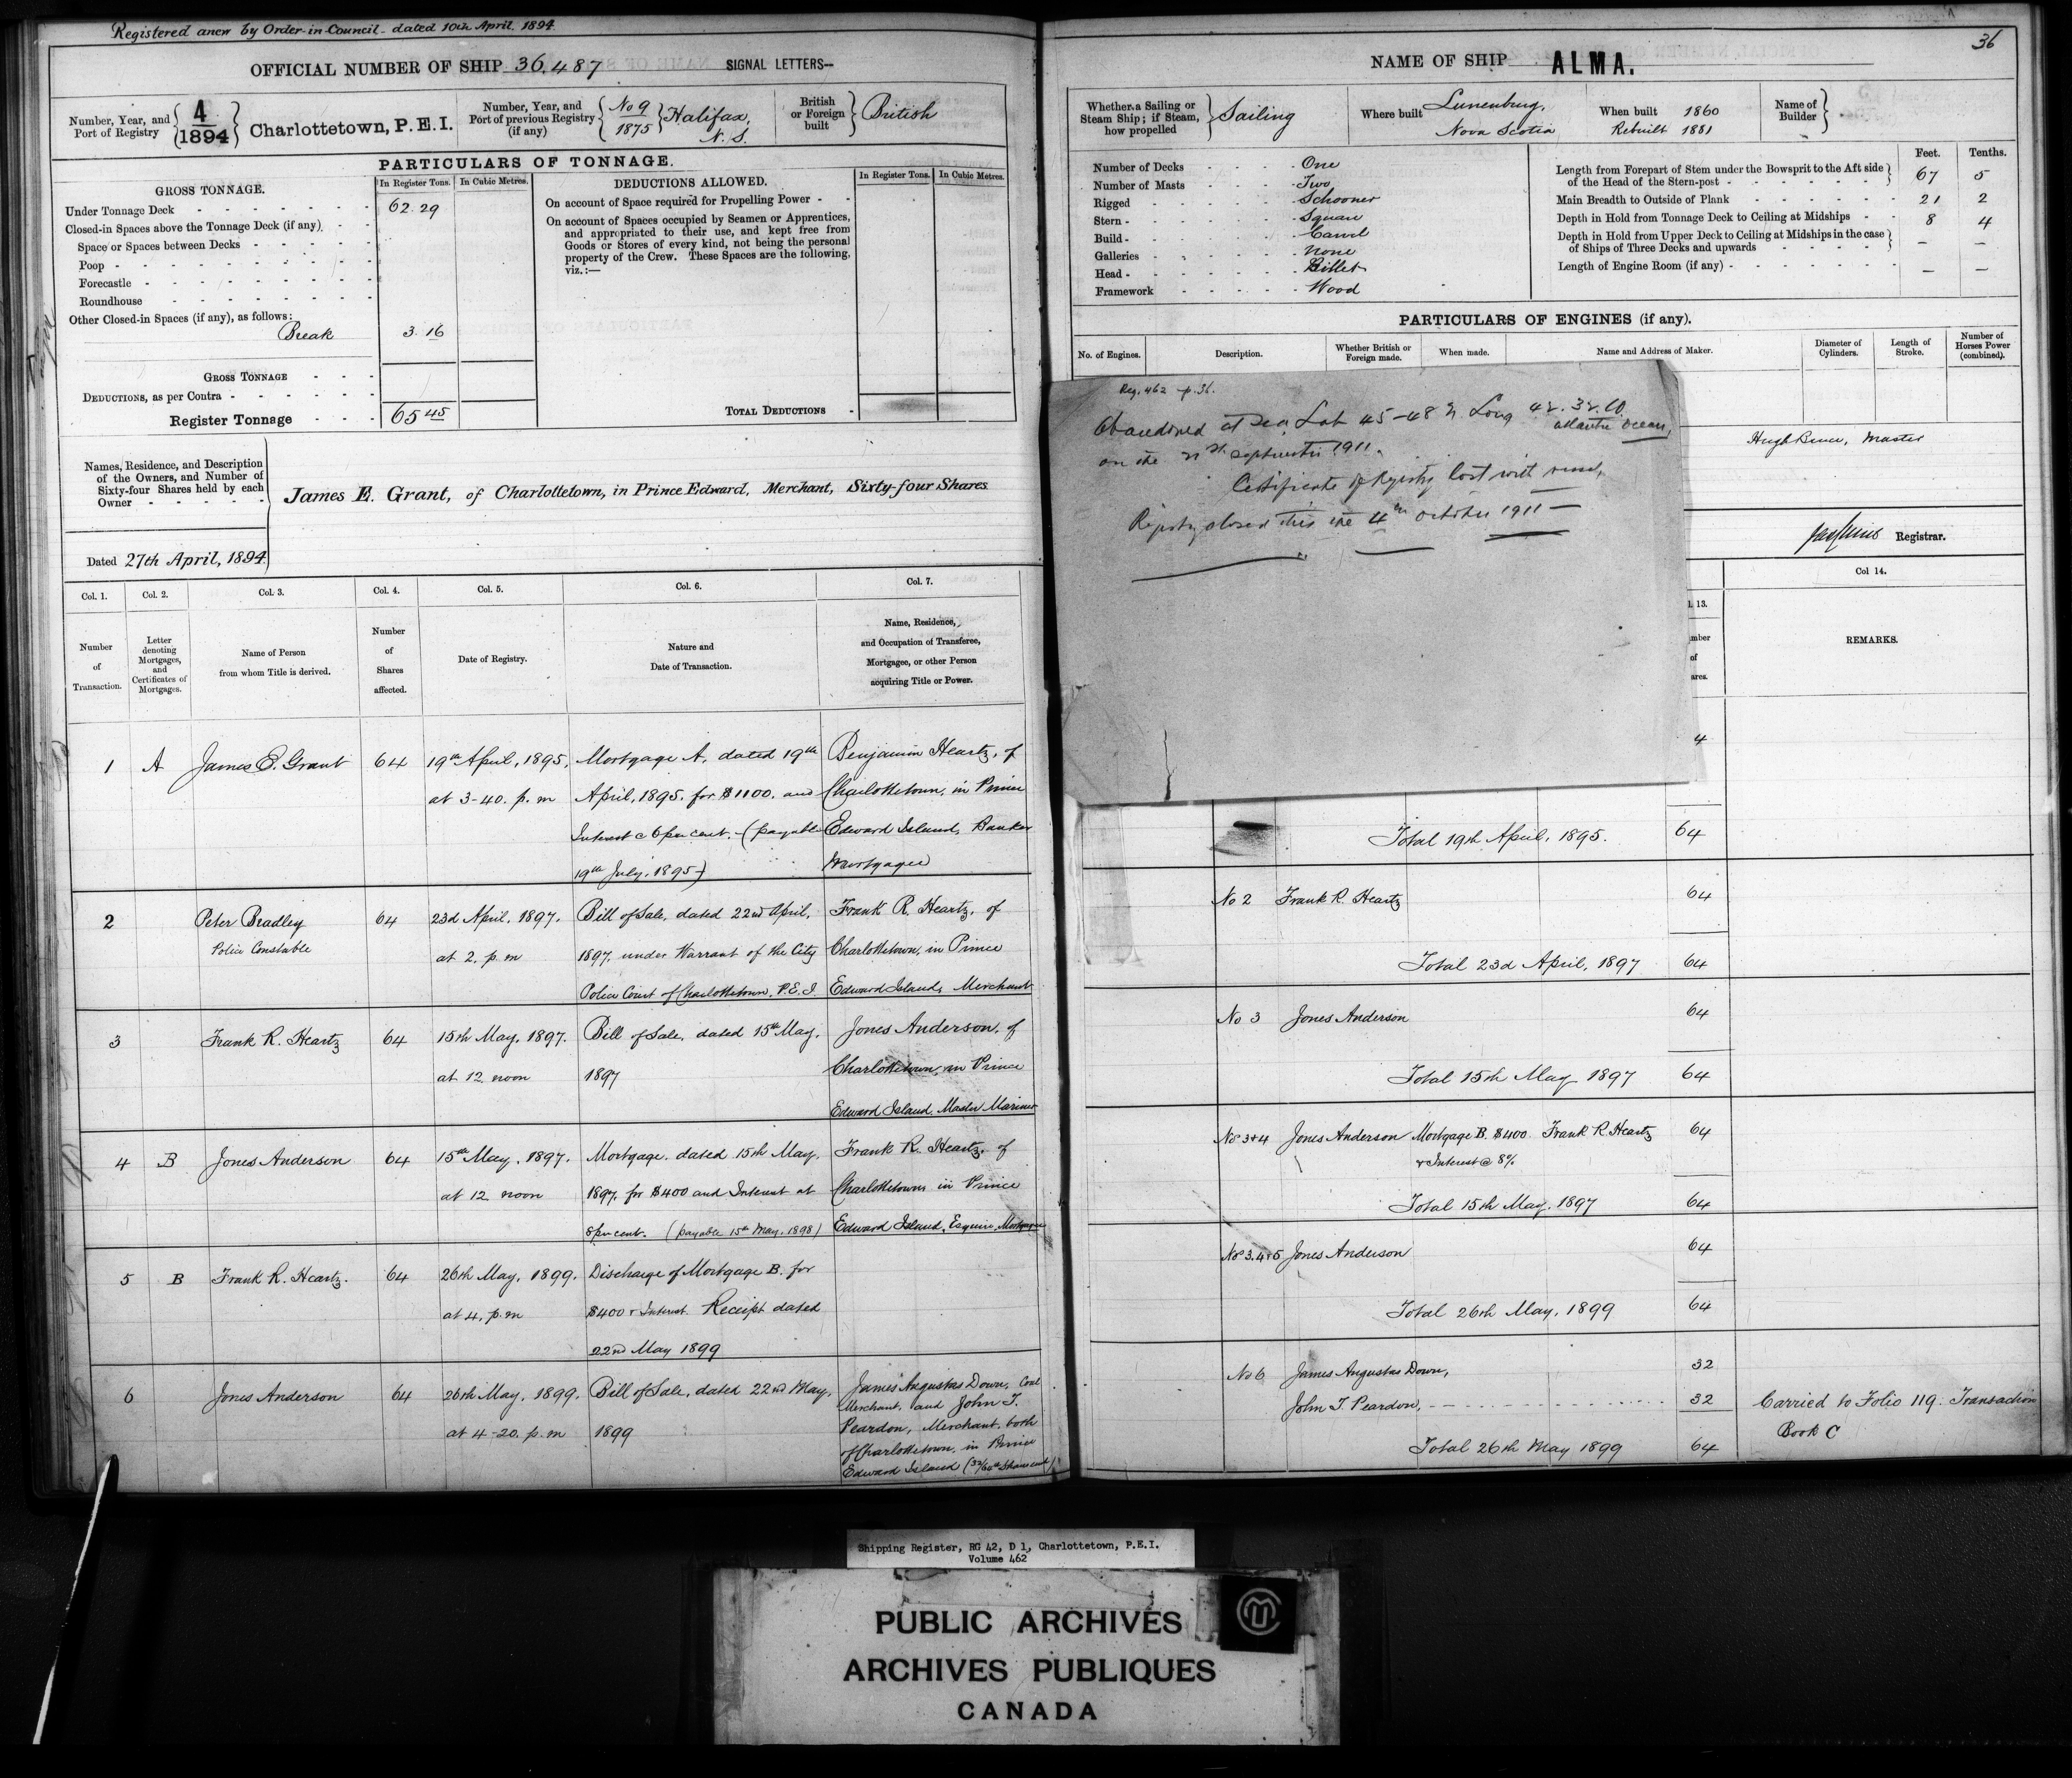 Registered anew by Order-in-Council dated 10th April, 1894
OFFICIAL NUMBER OF SHIP 36,487 SIGNAL LETTERS—
Number, Year, and Port of Registry 4/1894 Charlottetown, P.E.I.
Number, Year, and Port of previous Registry (if any) No 9 1875 Halifax, N.S.
British or Foreign built British
PARTICULARS OF TONNAGE.
GROSS TONNAGE. In Register Tons. In Cubic Metres.
Under Tonnage Deck 62.29
Closed-in Spaces above the Tonnage Deck (if any)
Space or Spaces between Decks
Poop
Forecastle
Roundhouse
Other Closed-in Spaces (if any), as follows:
Break 3.16
GROSS TONNAGE
DEDUCTIONS, as per Contra
Register Tonnage 65.45
DEDUCTIONS ALLOWED. In Register Tons. In Cubic Metres.
On account of Space required for Propelling Power
On account of Spaces occupied by Seamen or Apprentices,
and appropriated to their use, and kept free from
Goods or Stores of every kind, not being the personal
property of the Crew. These Spaces are the following,
viz.:—
TOTAL DEDUCTIONS
Names, Residence, and Description
of the Owners, and Number of
Sixty-four Shares held by each
Owner
James E. Grant, of Charlottetown, in Prince Edward, Merchant, Sixty-four Shares
Dated 27th April, 1894
Col. 1. Col. 2. Col. 3. Col. 4. Col. 5. Col. 6. Col. 7.
Number of Transaction.
Letter denoting Mortgages, and Certificates of Mortgages.
Name of Person from whom Title is derived.
Number of Shares affected.
Date of Registry.
Nature and Date of Transaction.
Name, Residence, and Occupation of Transferee, Mortgagee, or other Person acquiring Title or Power.
1 A James E. Grant 64 19th April, 1895, Mortgage A. dated 19th Benjamin Heartz, of
at 3-40. p.m April, 1895. for $1100. and Charlottetown, in Prince
Interest @ 6 per cent. (payable Edward Island, Banker
19th July, 1895) Mortgagee
2 Peter Bradley 64 23d April, 1897. Bill of Sale, dated 22nd April, Frank R. Heartz, of
Police Constable at 2. p.m 1897, under Warrant of the City Charlottetown, in Prince
Police Court of Charlottetown, P.E.I. Edward Island, Merchant
3 Frank R. Heartz 64 15th May, 1897. Bill of Sale, dated 15th May, Jones Anderson, of
at 12 noon 1897 Charlottetown, in Prince
Edward Island, Master Mariner
4 B Jones Anderson 64 15th May, 1897. Mortgage. dated 15th May, Frank R. Heartz, of
at 12 noon 1897, for $400 and Interest at Charlottetown in Prince
8 per cent. (payable 15th May, 1898) Edward Island, Esquire, Mortgagee
5 B Frank R. Heartz. 64 26th May, 1899. Discharge of Mortgage B. for
at 4, p.m $400 & Interest. Receipt dated
22nd May 1899
6 Jones Anderson 64 26th May, 1899. Bill of Sale, dated 22nd May, James Augustas Down, Coal
at 4-20. p.m 1899 Merchant, and John T.
Peardon, Merchant, both
of Charlottetown, in Prince
Edward Island (32/64th Shares each)
36
NAME OF SHIP ALMA.
Whether a Sailing or Steam Ship; if Steam, how propelled Sailing
Where built Lunenburg, Nova Scotia
When built 1860
Rebuilt 1881
Name of Builder
Number of Decks One
Number of Masts Two
Rigged Schooner
Stern Square
Build Carvel
Galleries None
Head Billet
Framework Wood
Feet. Tenths.
Length from Forepart of Stem under the Bowsprit to the Aft side
of the Head of the Stern-post 67 5
Main Breadth to Outside of Plank 21 2
Depth in Hold from Tonnage Deck to Ceiling at Midships 8 4
Depth in Hold from Upper Deck to Ceiling at Midships in the case
of Ships of Three Decks and upwards — —
Length of Engine Room (if any) — —
PARTICULARS OF ENGINES (if any).
No. of Engines. Description. Whether British or Foreign made. When made. Name and Address of Maker. Diameter of Cylinders. Length of Stroke. Number of Horses Power (combined).
Reg. 462 p. 36.
Abandoned at Sea Lat 45-48 N. Long 42.32.W
Atlantic Ocean,
on the 21st September 1911.
Certificate of Registry lost with vessel,
Registry closed this the 4th October 1911 —
Master
Registrar.
l. 13. Col 14.
mber of ares.
REMARKS.
4
64
Total 19th April, 1895. 64
No 2 Frank R. Heartz 64
Total 23d April, 1897 64
No 3 Jones Anderson 64
Total 15th May 1897 64
Nos 3+4 Jones Anderson Mortgage B. $400 Frank R. Heartz 64
& Interest @ 8%
Total 15th May, 1897 64
Nos 3.4+5 Jones Anderson 64
Total 26th May, 1899 64
No 6 James Augustas Down, 32
John T. Peardon, 32 Carried to Folio 119. Transaction
Book C
Total 26th May 1899 64
Shipping Register, RG 42, D 1, Charlottetown, P.E.I.
Volume 462
PUBLIC ARCHIVES
ARCHIVES PUBLIQUES
CANADA